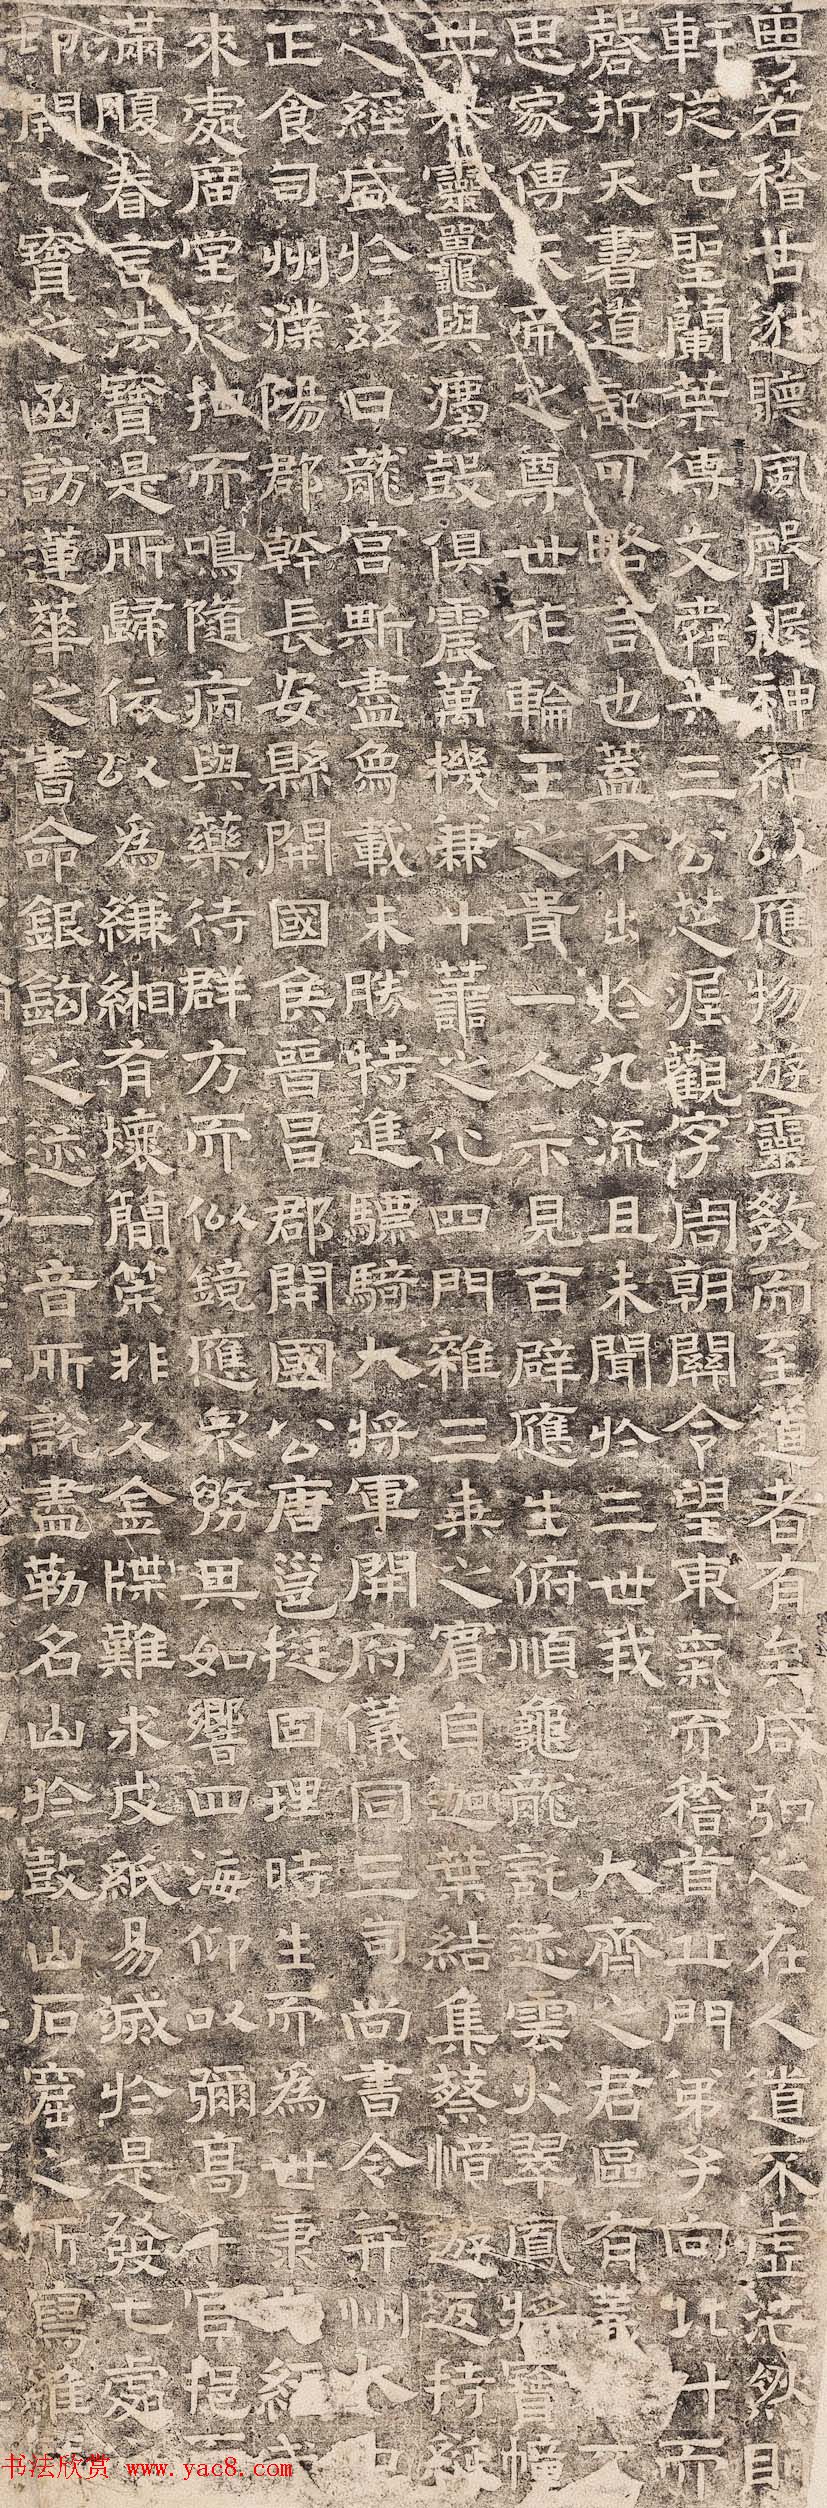 粵若稽古逖聽風聲握神紀以應物遊靈教而至道者有矣咸弘之在人道不虛茫然則
軒從七聖蘭葉傳文舜共三公芝泥觀字周朝關令望東氣而稽首北門弟子向北斗而
磬折天書道記可略言也蓋不出於九流且未聞於三世我大齊之君區有
思家傳天帝之尊世祚輪王之貴一人示見百辟應生俯順龜龍託迹雲火翠鳳將寶幢
共來靈鼉與瓊鼓俱震萬機兼十善之化四門雜三乘之賓自迦葉結集蔡愔遊返持綖
之經盛於茲日龍宮斯盡為載未勝特進驃騎大將軍開府儀同三司尚書令并州大中
正食司州濮陽郡幹長安縣開國侯晉昌郡開國公唐邕挺固理時生而為世秉
來處廣堂從扣而鳴隨病與藥待群方而似鏡應眾務其如響四海仰以彌高千官挹而
滿腹眷言法寶是所歸依以為縑緗有壞簡策非久金牒難求皮紙易滅於是發七處
印開七寶之函訪蓮華之書命銀鈎之迹一音所說盡勒名山於鼓山石窟之所寫維
书法欣赏 www.yac8.com